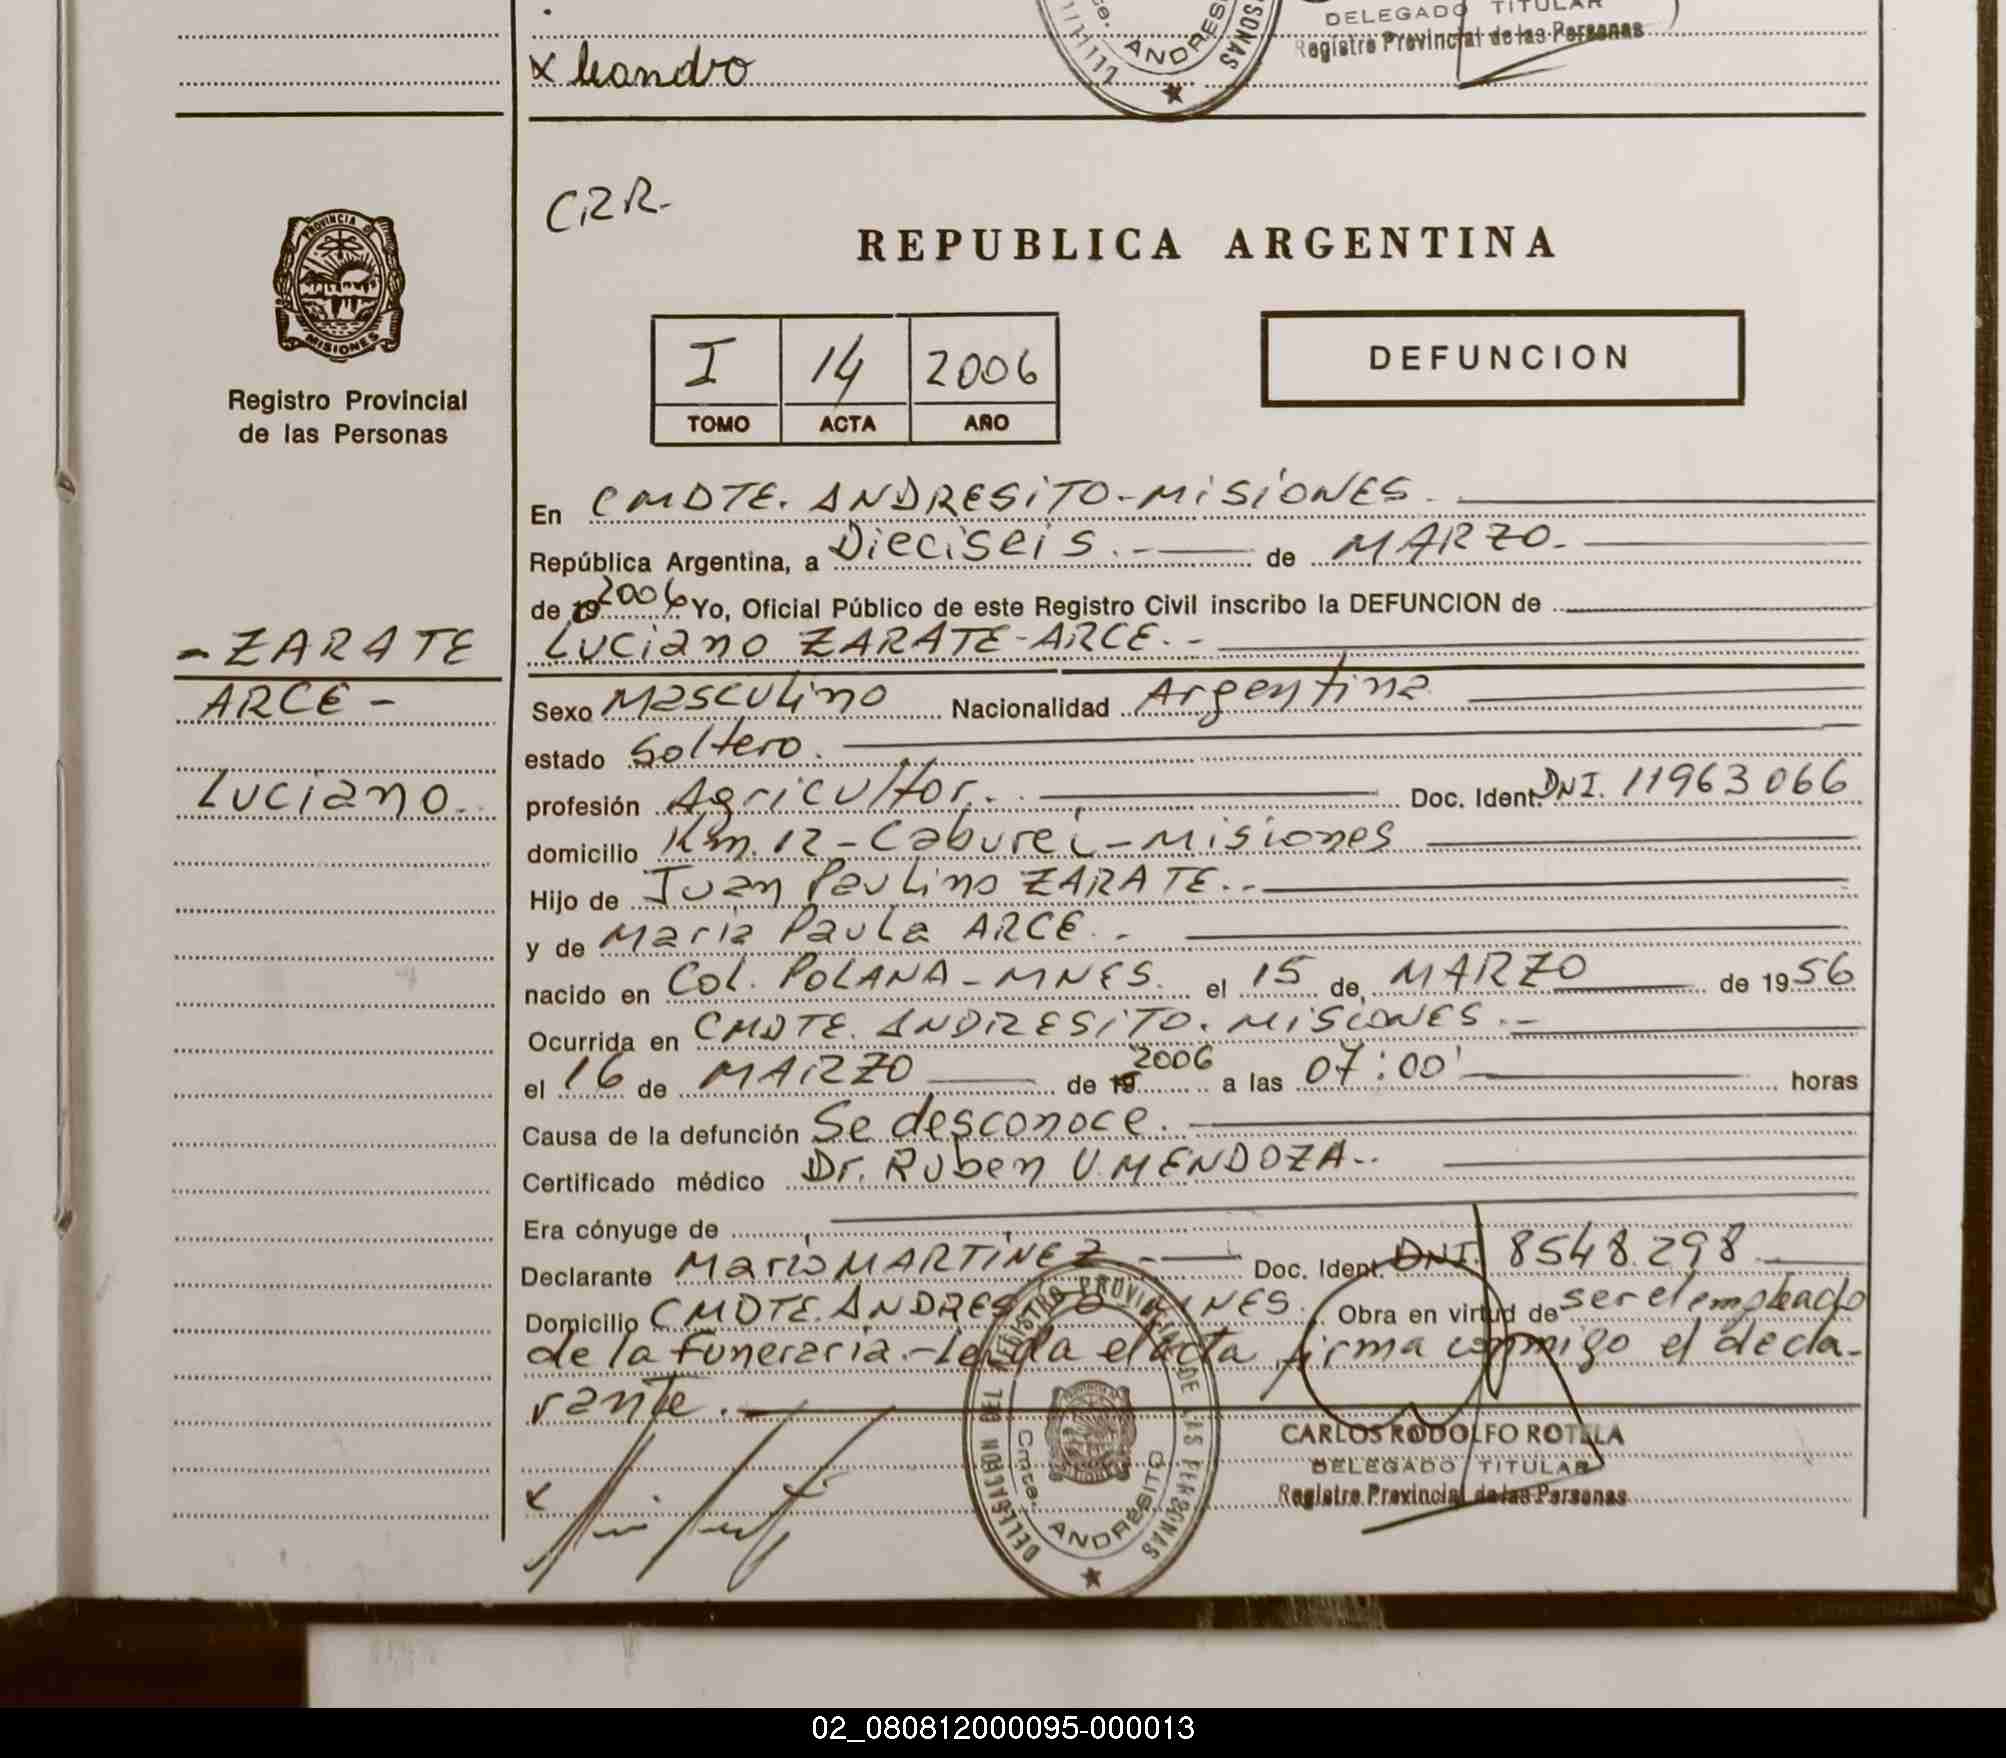 DELEGADO TITULAR
Registro Provincial de las Personas
ANDRES
x Leandro
CRR.
REPUBLICA ARGENTINA
PROVINCIA D
MISIONES
Registro Provincial
de las Personas
I 14 2006
TOMO ACTA AÑO
DEFUNCION
En CMDTE. ANDRESITO-MISIONES.
República Argentina, a Dieciseis.- de MARZO.-
de 19 2006 Yo, Oficial Público de este Registro Civil inscribo la DEFUNCION de
Luciano ZARATE-ARCE.-
- ZARATE
ARCE -
Luciano.
Sexo Masculino Nacionalidad Argentina
estado Soltero.
profesión Agricultor. Doc. Ident. DNI. 11963066
domicilio Km. 12 - Cabureí - Misiones
Hijo de Juan Paulino ZARATE.-
y de Maria Paula ARCE.-
nacido en Col. POLANA - MNES. el 15 de MARZO de 1956
Ocurrida en CMDTE. ANDRESITO. MISIONES.-
el 16 de MARZO de 19 2006 a las 07:00' horas
Causa de la defunción Se desconoce.
Certificado médico Dr. Ruben U. MENDOZA.-
Era cónyuge de
Declarante Mario MARTINEZ - Doc. Ident. DNI. 8548.298
Domicilio CMDTE. ANDRESITO MNES. Obra en virtud de ser el empleado
de la Funeraria.- Leida el acta firma conmigo el decla-
rante.
DELEGACION DEL REGISTRO PROVINCIAL DE LAS PERSONAS
Cmte. ANDRESITO
CARLOS RODOLFO ROTELA
DELEGADO TITULAR
Registro Provincial de las Personas
x
02_080812000095-000013